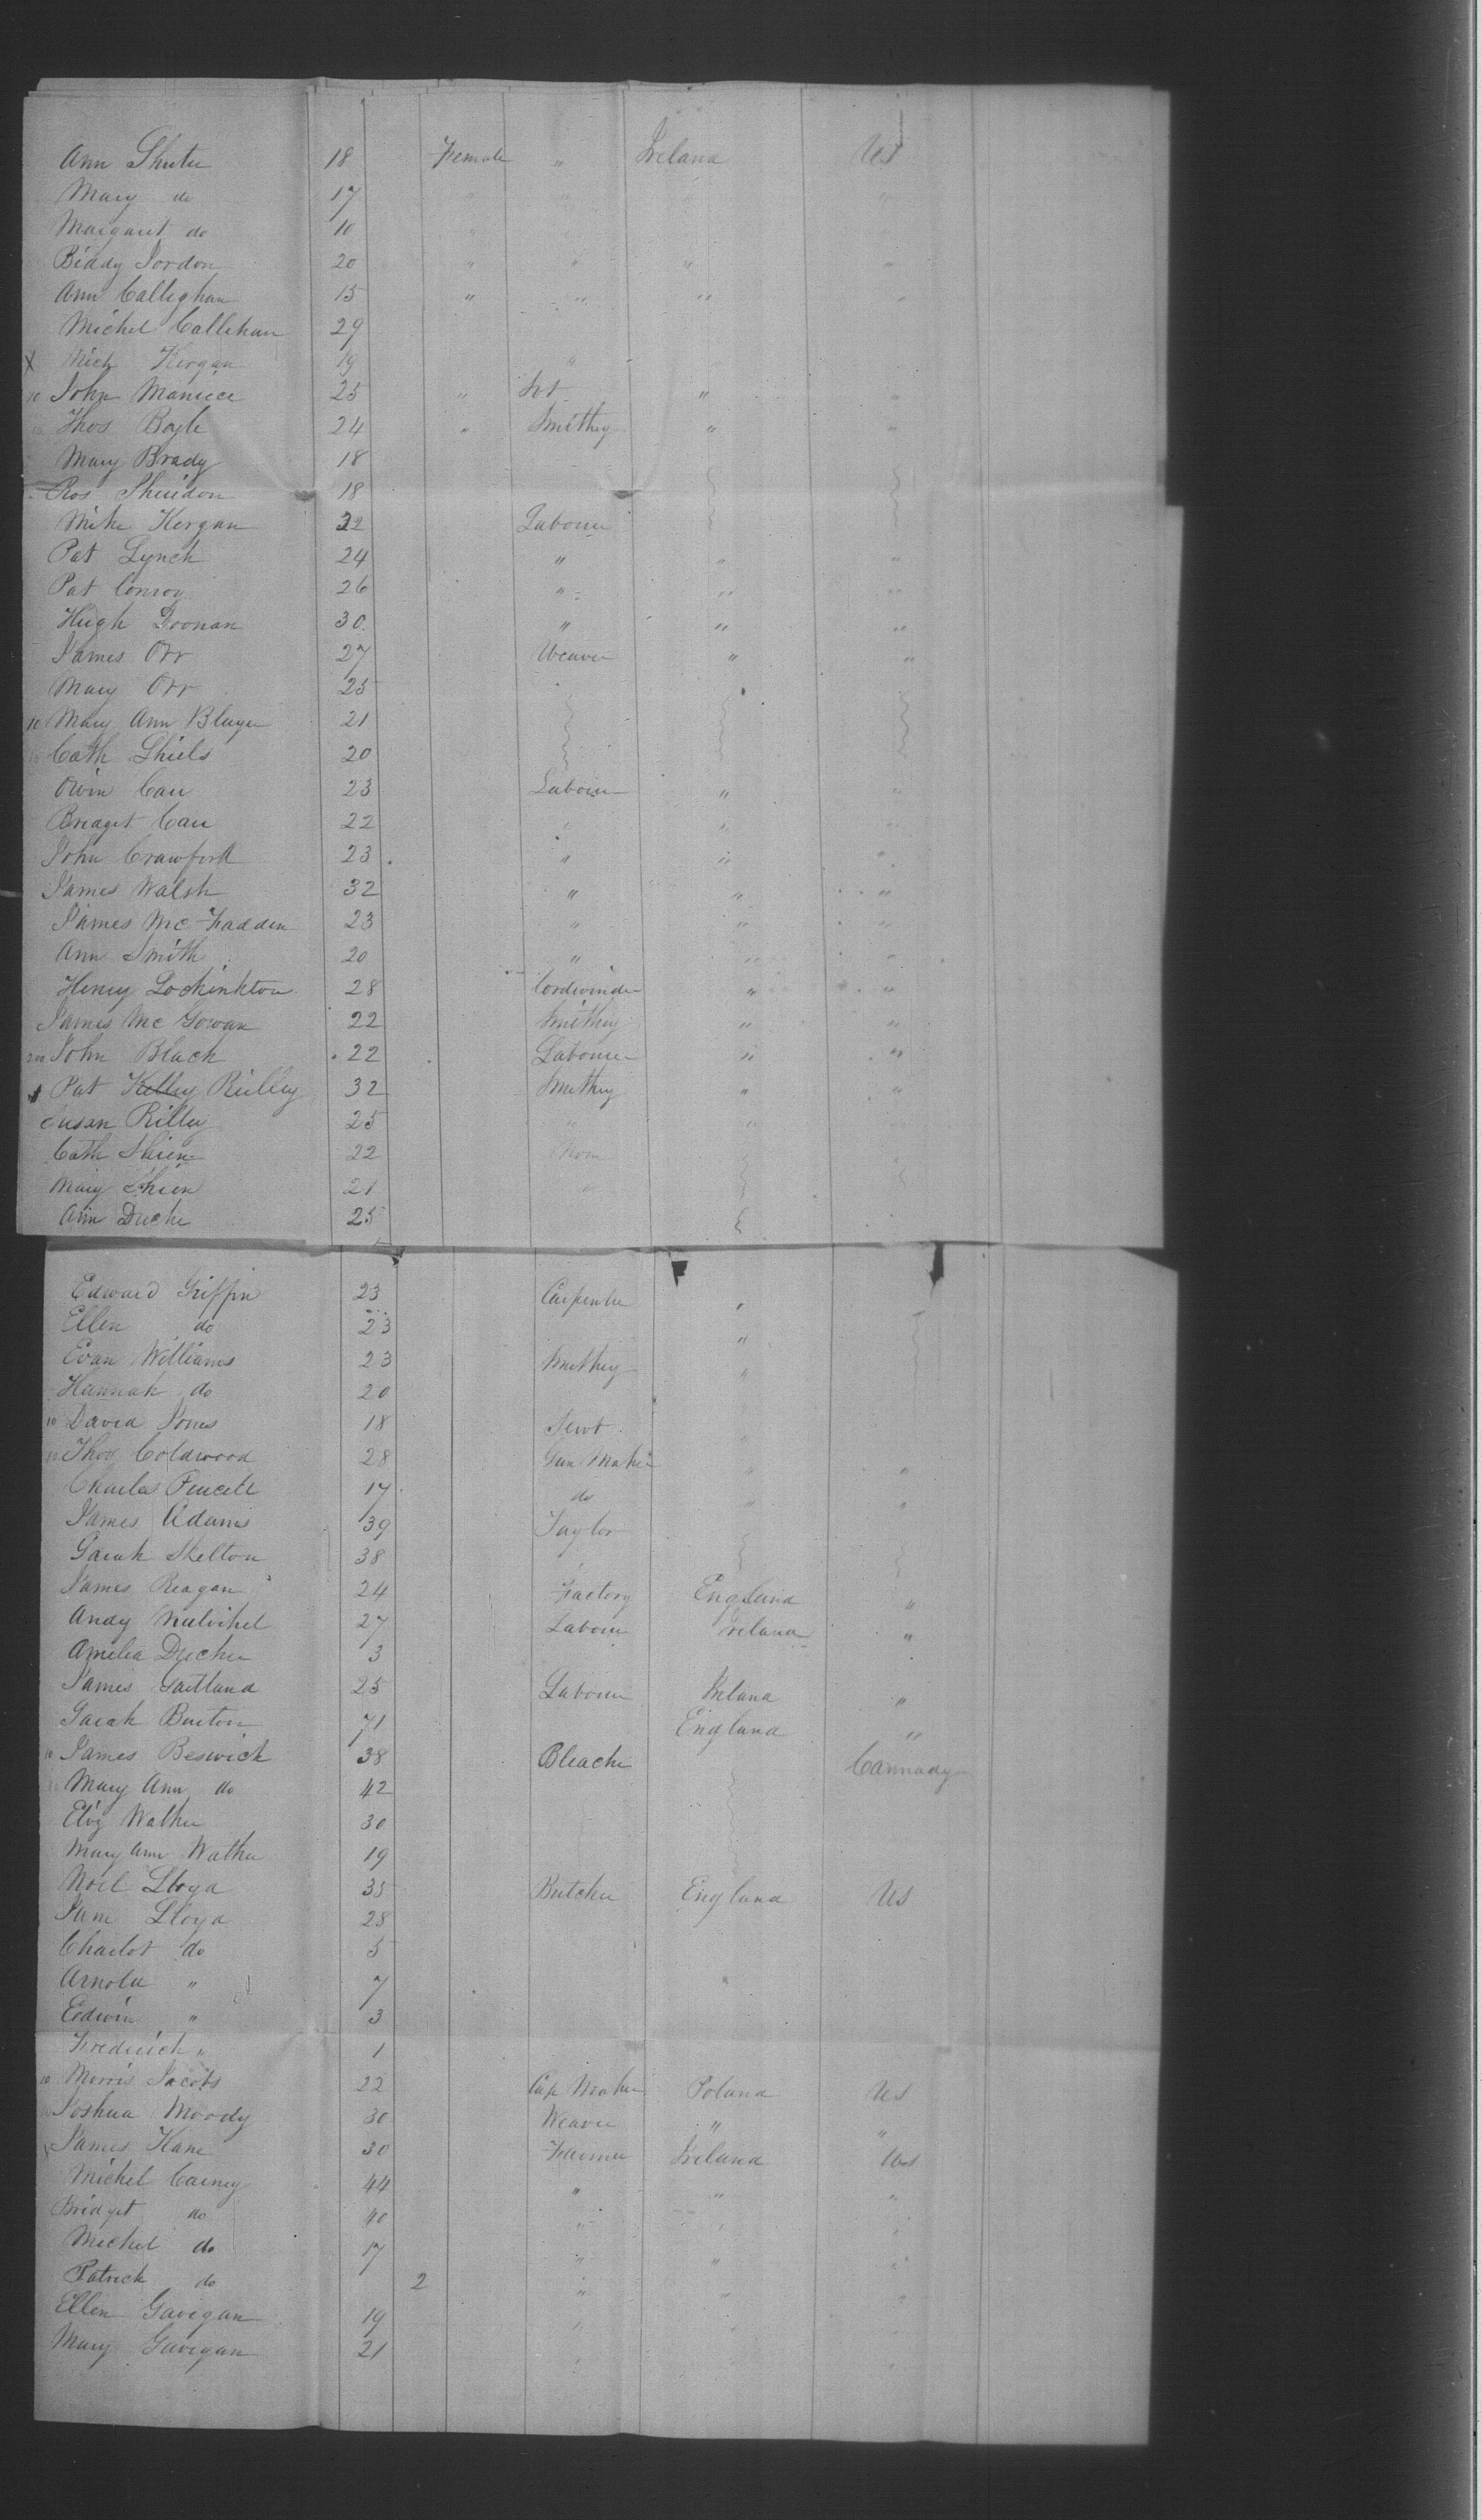 Ann Shuter 18 Female " Ireland US
Mary do 17 " " " "
Margaret do 10 " " " "
Biddy Jordon 20 " " " "
Ann Calleghan 15 " " " "
Michel Callehan 29
X Mich Kergan 19 "
10 John Maniece 25 " " "
10 Thos Boyle 24 " Smithey " "
Mary Brady 18
Ros Sheridon 18
Mike Kergan 32 Labourer
Pat Lynch 24 " " "
Pat Conroy 26 " " "
Hugh Doonan 30 " " "
James Orr 27 Weaver " "
Mary Orr 25
10 Mary Ann
10 Cath Shiels 20
Owin Carr 23 Labourer " "
Bridget Carr 22 " " "
John Crawford 23 " " "
James Walsh 32 " " "
James Mc Fadden 23 " " "
Ann Smith 20 " " "
Henry Lockinkton 28 Cordwinder " "
James Mc Gowan 22 Smithey " "
John Black 22 Labourer " "
Pat Kelley Reilley 32 Smithey " "
Susan Rilley 25 " "
Cath 22
Mary 21
Ann 25
Edward Griffin 23 Carpenter "
Ellen do 23 "
Evan Williams 23 Smithey "
Hannah do 20
10 David Jones 18 Servt "
10 Thos Coldwood 28 Gun Maker " "
Charles 17 do " "
James Adams 39 Taylor
Sarah Skelton 38
James Reagan 24 Factory England "
Andy Mulvihel 27 Labourer Ireland "
Amelia Ducher 3
James Gartland 25 Labourer Ireland "
Sarah Burton 71 England "
10 James Beswick 38 Bleacher Cannady
Mary Ann do 42
Eliz Walker 30
Mary Ann Walker 19
Noel Lloyd 35 Butcher England US
Jane Lloyd 28
Charlot do 5
Arnold " 7
Edwin " 3
Frederick " 1
10 Morris Jacobs 22 Cap Maker Poland US
Joshua Moody 30 Weaver " "
James Kane 30 Farmer Ireland US
Michel Carney 44 " " "
Bridget do 40 " " "
Michel do 17 " " "
Patrick do 2 " " "
Ellen Gavigan 19 " " "
Mary Gavigan 21 " "